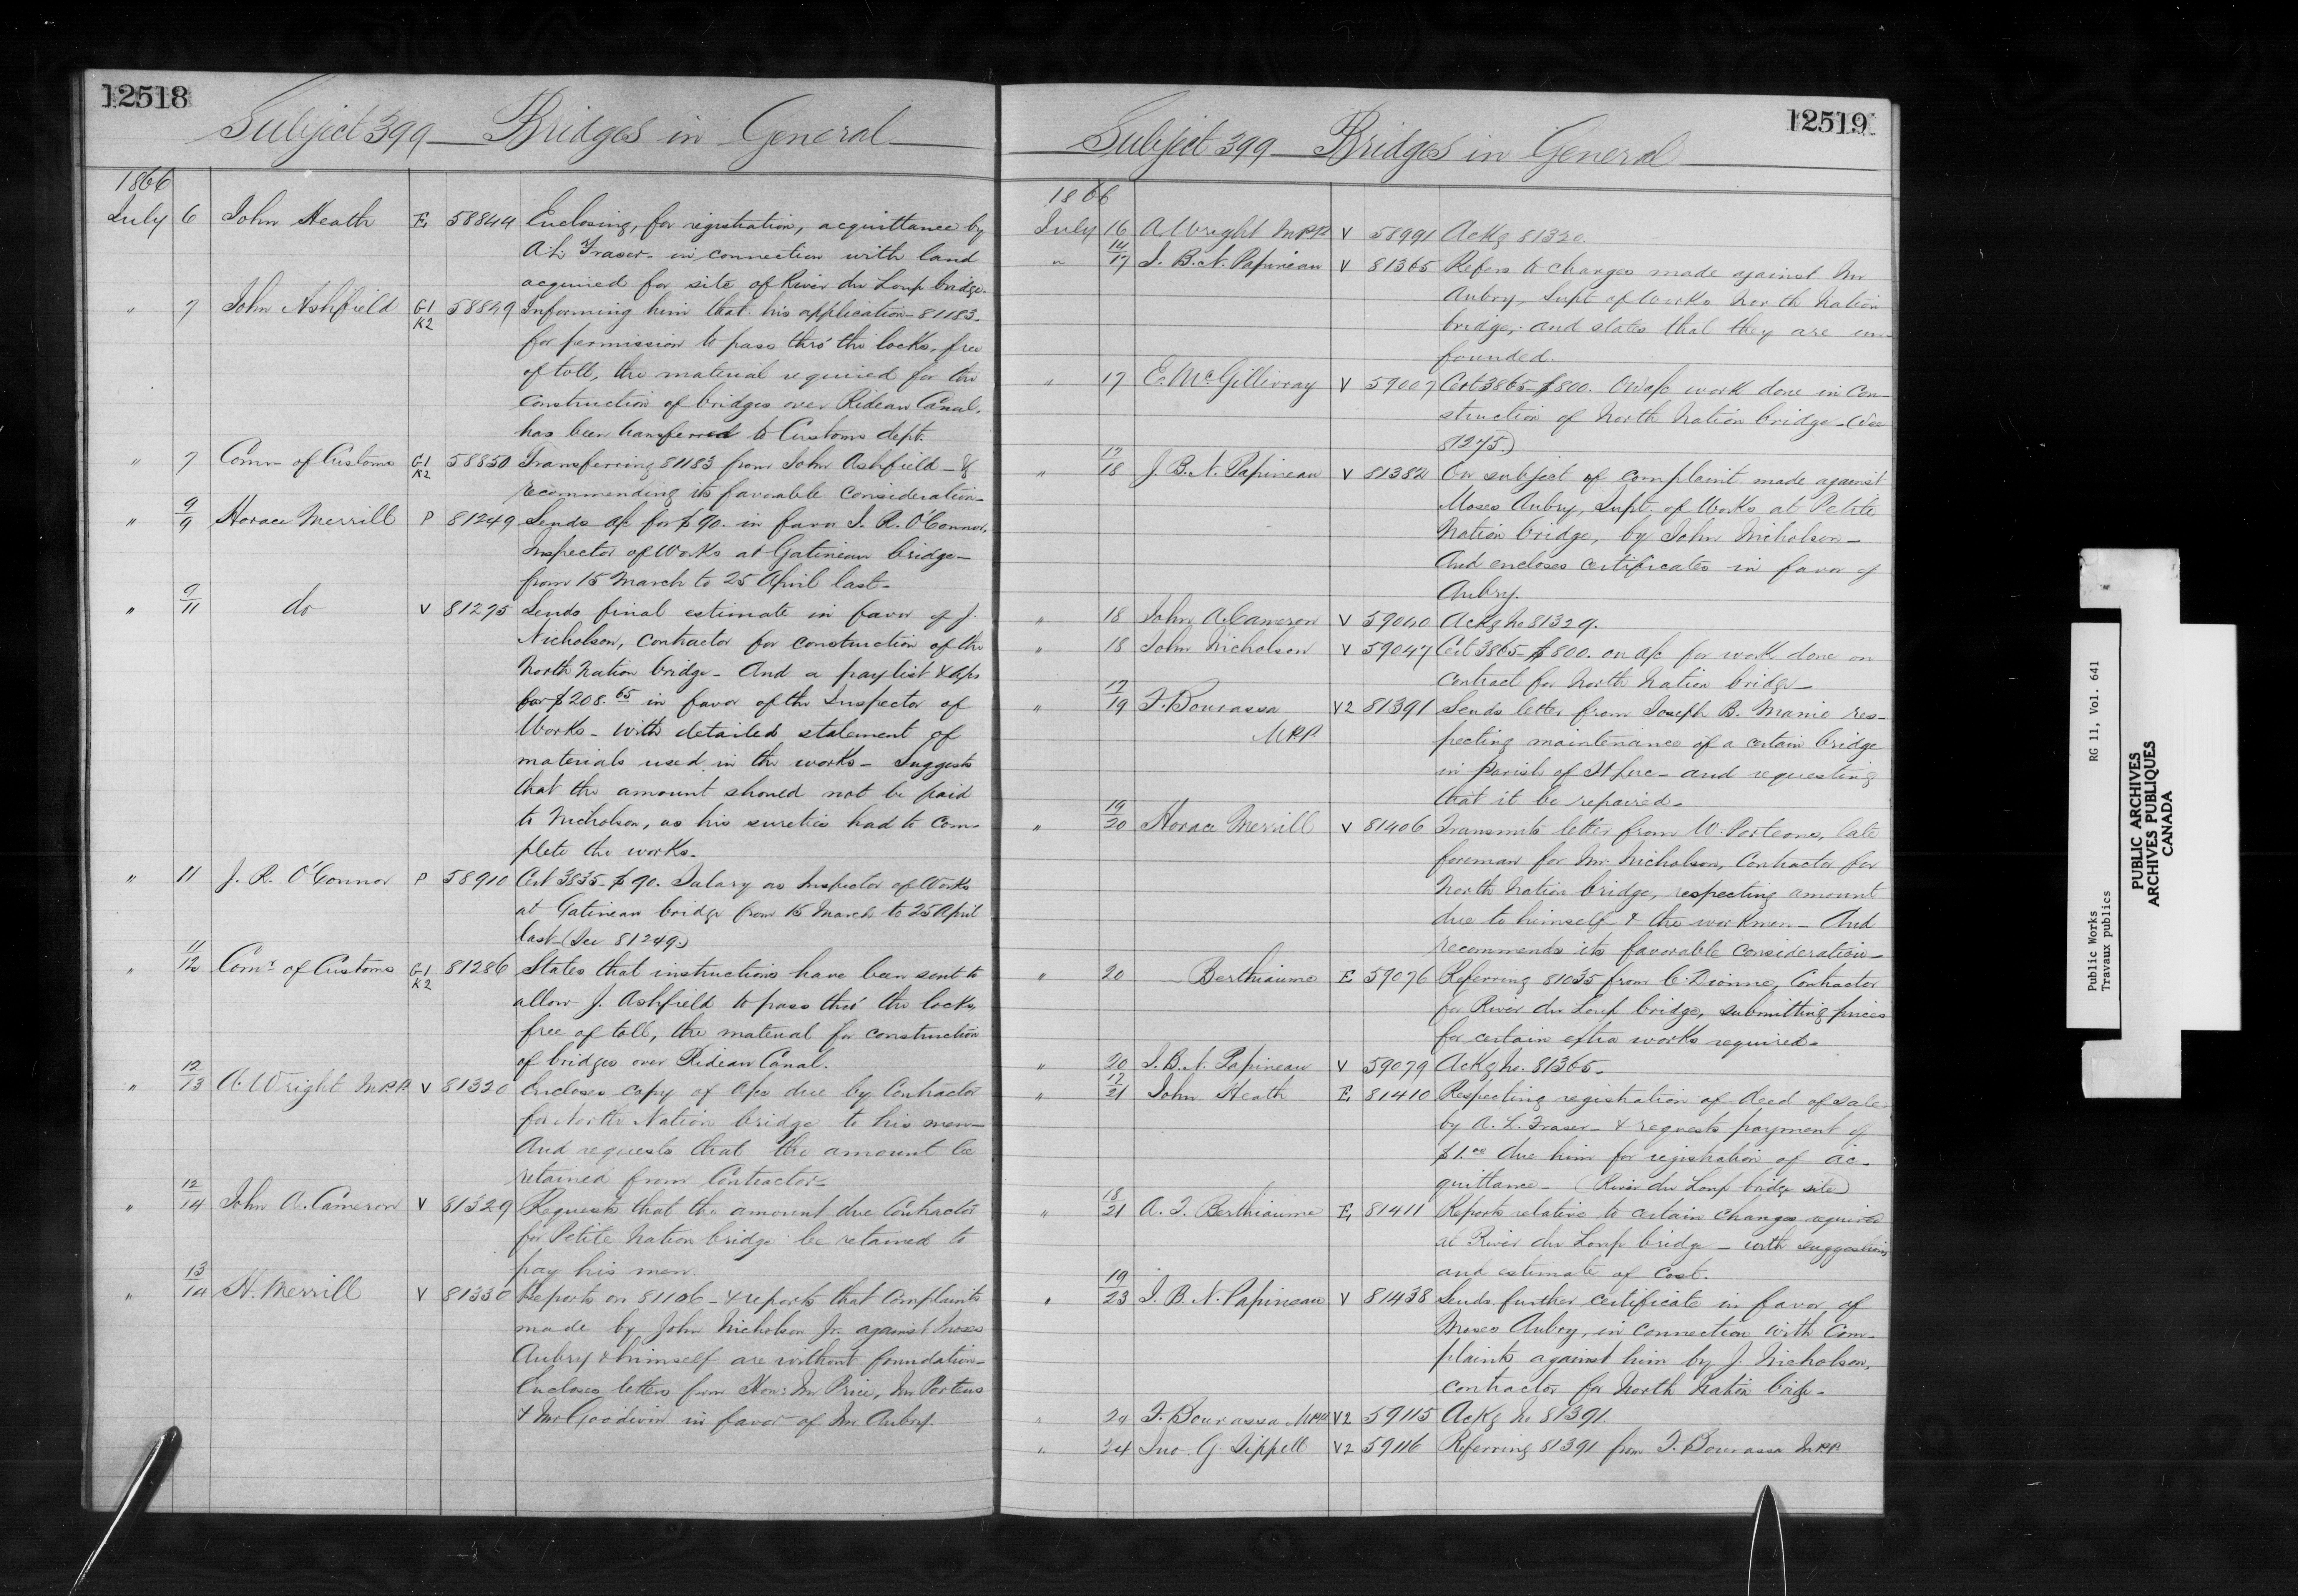 12518
Subject 399 — Bridges in General
1866
July 6 John Heath E 58844 Enclosing, for registration, acquittance by
A. L. Fraser - in connection with land
acquired for site of River du Loup bridge.
" 7 John Ashfield G1 K2 58849 Informing him that his application - 81183 -
for permission to pass thro' the locks, free
of toll, the material required for the
construction of bridges over Rideau Canal,
has been transferred to Customs dept.
" 7 Comr of Customs G1 K2 58850 Transferring 81183 from John Ashfield - &
recommending its favorable consideration -
" 9/9 Horace Merrill P 81249 Sends a/c for $90. in favor J. R. O'Connor,
Inspector of Works at Gatineau bridge -
from 15 March to 25 April last -
" 9/11 do V 81275 Sends final estimate in favor of J.
Nicholson, Contractor for construction of the
North Nation bridge - And a pay list & a/cs
for $208.65 in favor of the Inspector of
Works - with detailed statement of
materials used in the works - Suggests
that the amount should not be paid
to Nicholson, as his sureties had to com-
plete the works -
" 11 J. R. O'Connor P 58910 Cert 3835 - $90. Salary as Inspector of Works
at Gatineau bridge from 15 March to 25 April
last - (See 81249.)
" 11/12 Comr of Customs G1 K2 81286 States that instructions have been sent to
allow J. Ashfield to pass thro' the locks,
free of toll, the material for construction
of bridges over Rideau Canal.
" 12/13 A. Wright M.P.P. V 81320 Encloses copy of a/cs due by Contractor
for North Nation bridge to his men -
And requests that the amount be
retained from Contractor -
" 12/14 John A. Cameron V 81329 Requests that the amount due Contractor
for Petite Nation bridge be retained to
pay his men.
" 13/14 H. Merrill V 81330 Reports on 81106 - & reports that complaints
made by John Nicholson Jr. against Moses
Aubry & himself are without foundation -
Encloses letters from Hon: Mr Price, Mr Porteus
& Mr Goodwin in favor of Mr Aubry.
12519
Subject 399 — Bridges in General
1866
July 16 A Wright M.P.P. V 58991 Ackg 81320.
" 14/17 J. B. N. Papineau V 81365 Refers to charges made against Mr
Aubry, Supt of Works North Nation
bridge, and states that they are un-
founded.
" 17 E. McGillivray V 59007 Cert 3865 - $800. on a/c work done in con-
struction of North Nation bridge - (See
81275.)
" 17/18 J. B. N. Papineau V 81382 On subject of complaint made against
Moses Aubry, Supt. of Works at Petite
Nation bridge, by John Nicholson -
And encloses certificates in favor of
Aubry.
" 18 John A. Cameron V 59040 Ackg No 81329.
" 18 John Nicholson V 59047 Cert 3865 - $800. on a/c for work done on
contract for North Nation bridge -
" 17/19 F. Bourassa V2 81391 Sends letter from Joseph B. Manie res-
M.P.P. pecting maintenance of a certain bridge
in parish of St Luc - and requesting
that it be repaired -
" 19/20 Horace Merrill V 81406 Transmits letter from W. Porteous, late
foreman for Mr. Nicholson, Contractor for
North Nation bridge, respecting amount
due to himself & the workmen - And
recommends its favorable consideration -
" 20 — Berthiaume E 59076 Referring 81035 from C. Dionne, Contractor
for River du Loup bridge, submitting prices
for certain extra works required -
" 20 J. B. N. Papineau V 59079 Ackg No. 81365 -
" 17/21 John Heath E 81410 Respecting registration of deed of sale
by A. L. Fraser - & requests payment of
$1.00 due him for registration of ac-
quittance - (River du Loup bridge site)
" 18/21 A. T. Berthiaume E 81411 Reports relative to certain changes required
at River du Loup bridge - with suggestions
and estimate of cost.
" 19/23 J. B. N. Papineau V 81438 Sends further certificate in favor of
Moses Aubry, in connection with Com-
plaints against him by J. Nicholson,
contractor for North Nation bridge -
" 24 F. Bourassa M.P.P. V2 59115 Ackg No 81391
" 24 Jno. G. Sippell V2 59116 Referring 81391 from F. Bourassa M.P.P.
Public Works RG 11, Vol. 641
Travaux publics
PUBLIC ARCHIVES
ARCHIVES PUBLIQUES
CANADA